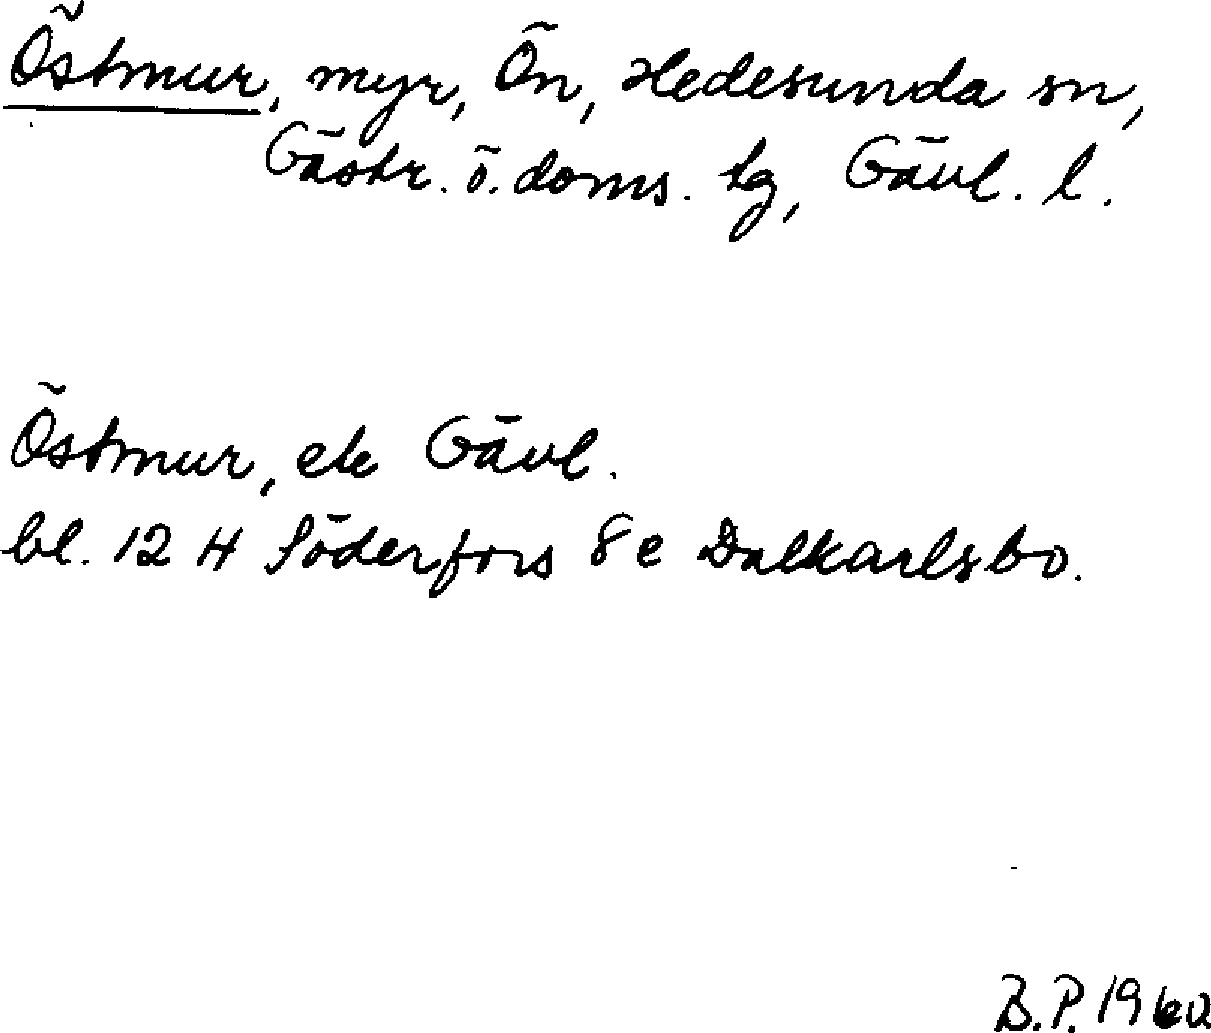 Östmur, myr, Ön, Hedesunda sn,
Gästr. ö. doms. lg, Gävl. l.
Östmur, ek Gävl.
bl. 12 H Söderfors 8 e Dalkarlsbo.
B.P. 1960